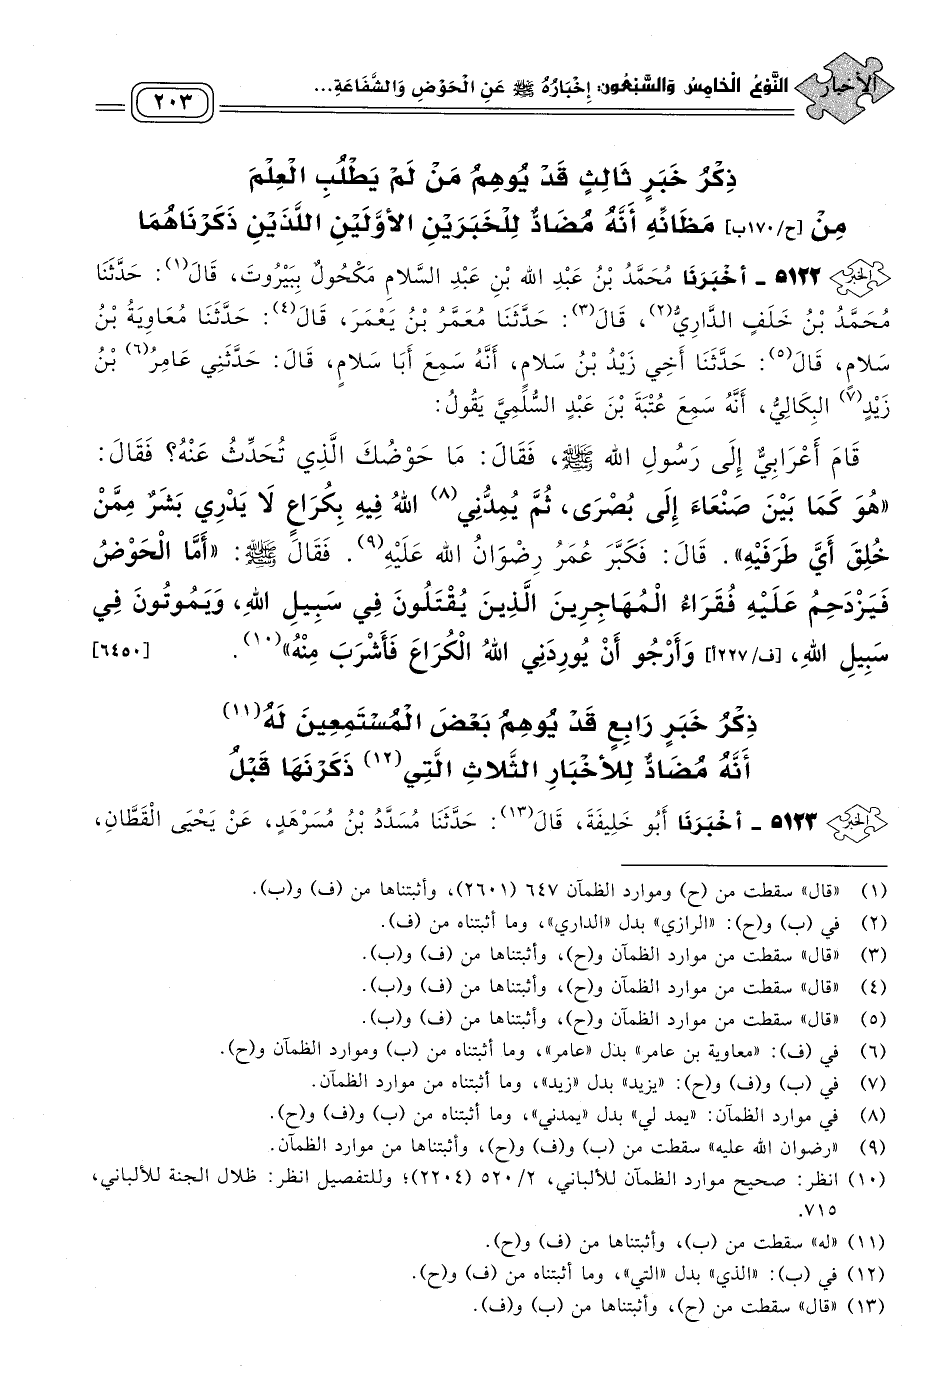 الأخبار النَّوْعُ الْخَامِسُ وَالسَّبْعُونَ: إِخْبَارُهُ ﷺ عَنِ الْحَوْضِ وَالشَّفَاعَةِ... ٢٠٣
ذِكْرُ خَبَرٍ ثَالِثٍ قَدْ يُوهِمُ مَنْ لَمْ يَطْلُبِ الْعِلْمَ
مِنْ [ح/١٧٠ب] مَظَانِّهِ أَنَّهُ مُضَادٌّ لِلْخَبَرَيْنِ الأَوَّلَيْنِ اللَّذَيْنِ ذَكَرْنَاهُمَا
٥١٢٢ ـ أَخْبَرَنَا مُحَمَّدُ بْنُ عَبْدِ الله بْنِ عَبْدِ السَّلَامِ مَكْحُولٌ بِبَيْرُوتَ، قَالَ(١): حَدَّثَنَا
مُحَمَّدُ بْنُ خَلَفٍ الدَّارِيُّ(٢)، قَالَ(٣): حَدَّثَنَا مُعَمَّرُ بْنُ يَعْمَرَ، قَالَ(٤): حَدَّثَنَا مُعَاوِيَةُ بْنُ
سَلَامٍ، قَالَ(٥): حَدَّثَنَا أَخِي زَيْدُ بْنُ سَلَامٍ، أَنَّهُ سَمِعَ أَبَا سَلَامٍ، قَالَ: حَدَّثَنِي عَامِرُ(٦) بْنُ
زَيْدٍ(٧) الْبِكَالِيُّ، أَنَّهُ سَمِعَ عُتْبَةَ بْنَ عَبْدٍ السُّلَمِيَّ يَقُولُ:
قَامَ أَعْرَابِيٌّ إِلَى رَسُولِ الله ﷺ، فَقَالَ: مَا حَوْضُكَ الَّذِي تُحَدِّثُ عَنْهُ؟ فَقَالَ:
«هُوَ كَمَا بَيْنَ صَنْعَاءَ إِلَى بُصْرَى، ثُمَّ يُمِدُّنِي(٨) اللهُ فِيهِ بِكُرَاعٍ لَا يَدْرِي بَشَرٌ مِمَّنْ
خُلِقَ أَيَّ طَرَفَيْهِ». قَالَ: فَكَبَّرَ عُمَرُ رِضْوَانُ الله عَلَيْهِ(٩). فَقَالَ ﷺ: «أَمَّا الْحَوْضُ
فَيَزْدَحِمُ عَلَيْهِ فُقَرَاءُ الْمُهَاجِرِينَ الَّذِينَ يُقْتَلُونَ فِي سَبِيلِ اللهِ، وَيَمُوتُونَ فِي
سَبِيلِ اللهِ، [ف/٢٢٧أ] وَأَرْجُو أَنْ يُورِدَنِي اللهُ الْكُرَاعَ فَأَشْرَبَ مِنْهُ»(١٠). [٦٤٥٠]
ذِكْرُ خَبَرٍ رَابِعٍ قَدْ يُوهِمُ بَعْضَ الْمُسْتَمِعِينَ لَهُ(١١)
أَنَّهُ مُضَادٌّ لِلأَخْبَارِ الثَّلَاثِ الَّتِي(١٢) ذَكَرْنَهَا قَبْلُ
٥١٢٣ ـ أَخْبَرَنَا أَبُو خَلِيفَةَ، قَالَ(١٣): حَدَّثَنَا مُسَدَّدُ بْنُ مُسَرْهَدٍ، عَنْ يَحْيَى الْقَطَّانِ،
(١) «قال» سقطت من (ح) وموارد الظمآن ٦٤٧ (٢٦٠١)، وأثبتناها من (ف) و(ب).
(٢) في (ب) و(ح): «الرازي» بدل «الداري»، وما أثبتناه من (ف).
(٣) «قال» سقطت من موارد الظمآن و(ح)، وأثبتناها من (ف) و(ب).
(٤) «قال» سقطت من موارد الظمآن و(ح)، وأثبتناها من (ف) و(ب).
(٥) «قال» سقطت من موارد الظمآن و(ح)، وأثبتناها من (ف) و(ب).
(٦) في (ف): «معاوية بن عامر» بدل «عامر»، وما أثبتناه من (ب) وموارد الظمآن و(ح).
(٧) في (ب) و(ف) و(ح): «يزيد» بدل «زيد»، وما أثبتناه من موارد الظمآن.
(٨) في موارد الظمآن: «يمد لي» بدل «يمدني»، وما أثبتناه من (ب) و(ف) و(ح).
(٩) «رضوان الله عليه» سقطت من (ب) و(ف) و(ح)، وأثبتناها من موارد الظمآن.
(١٠) انظر: صحيح موارد الظمآن للألباني، ٥٢٠/٢ (٢٢٠٤)؛ وللتفصيل انظر: ظلال الجنة للألباني،
٧١٥.
(١١) «له» سقطت من (ب)، وأثبتناها من (ف) و(ح).
(١٢) في (ب): «الذي» بدل «التي»، وما أثبتناه من (ف) و(ح).
(١٣) «قال» سقطت من (ح)، وأثبتناها من (ب) و(ف).